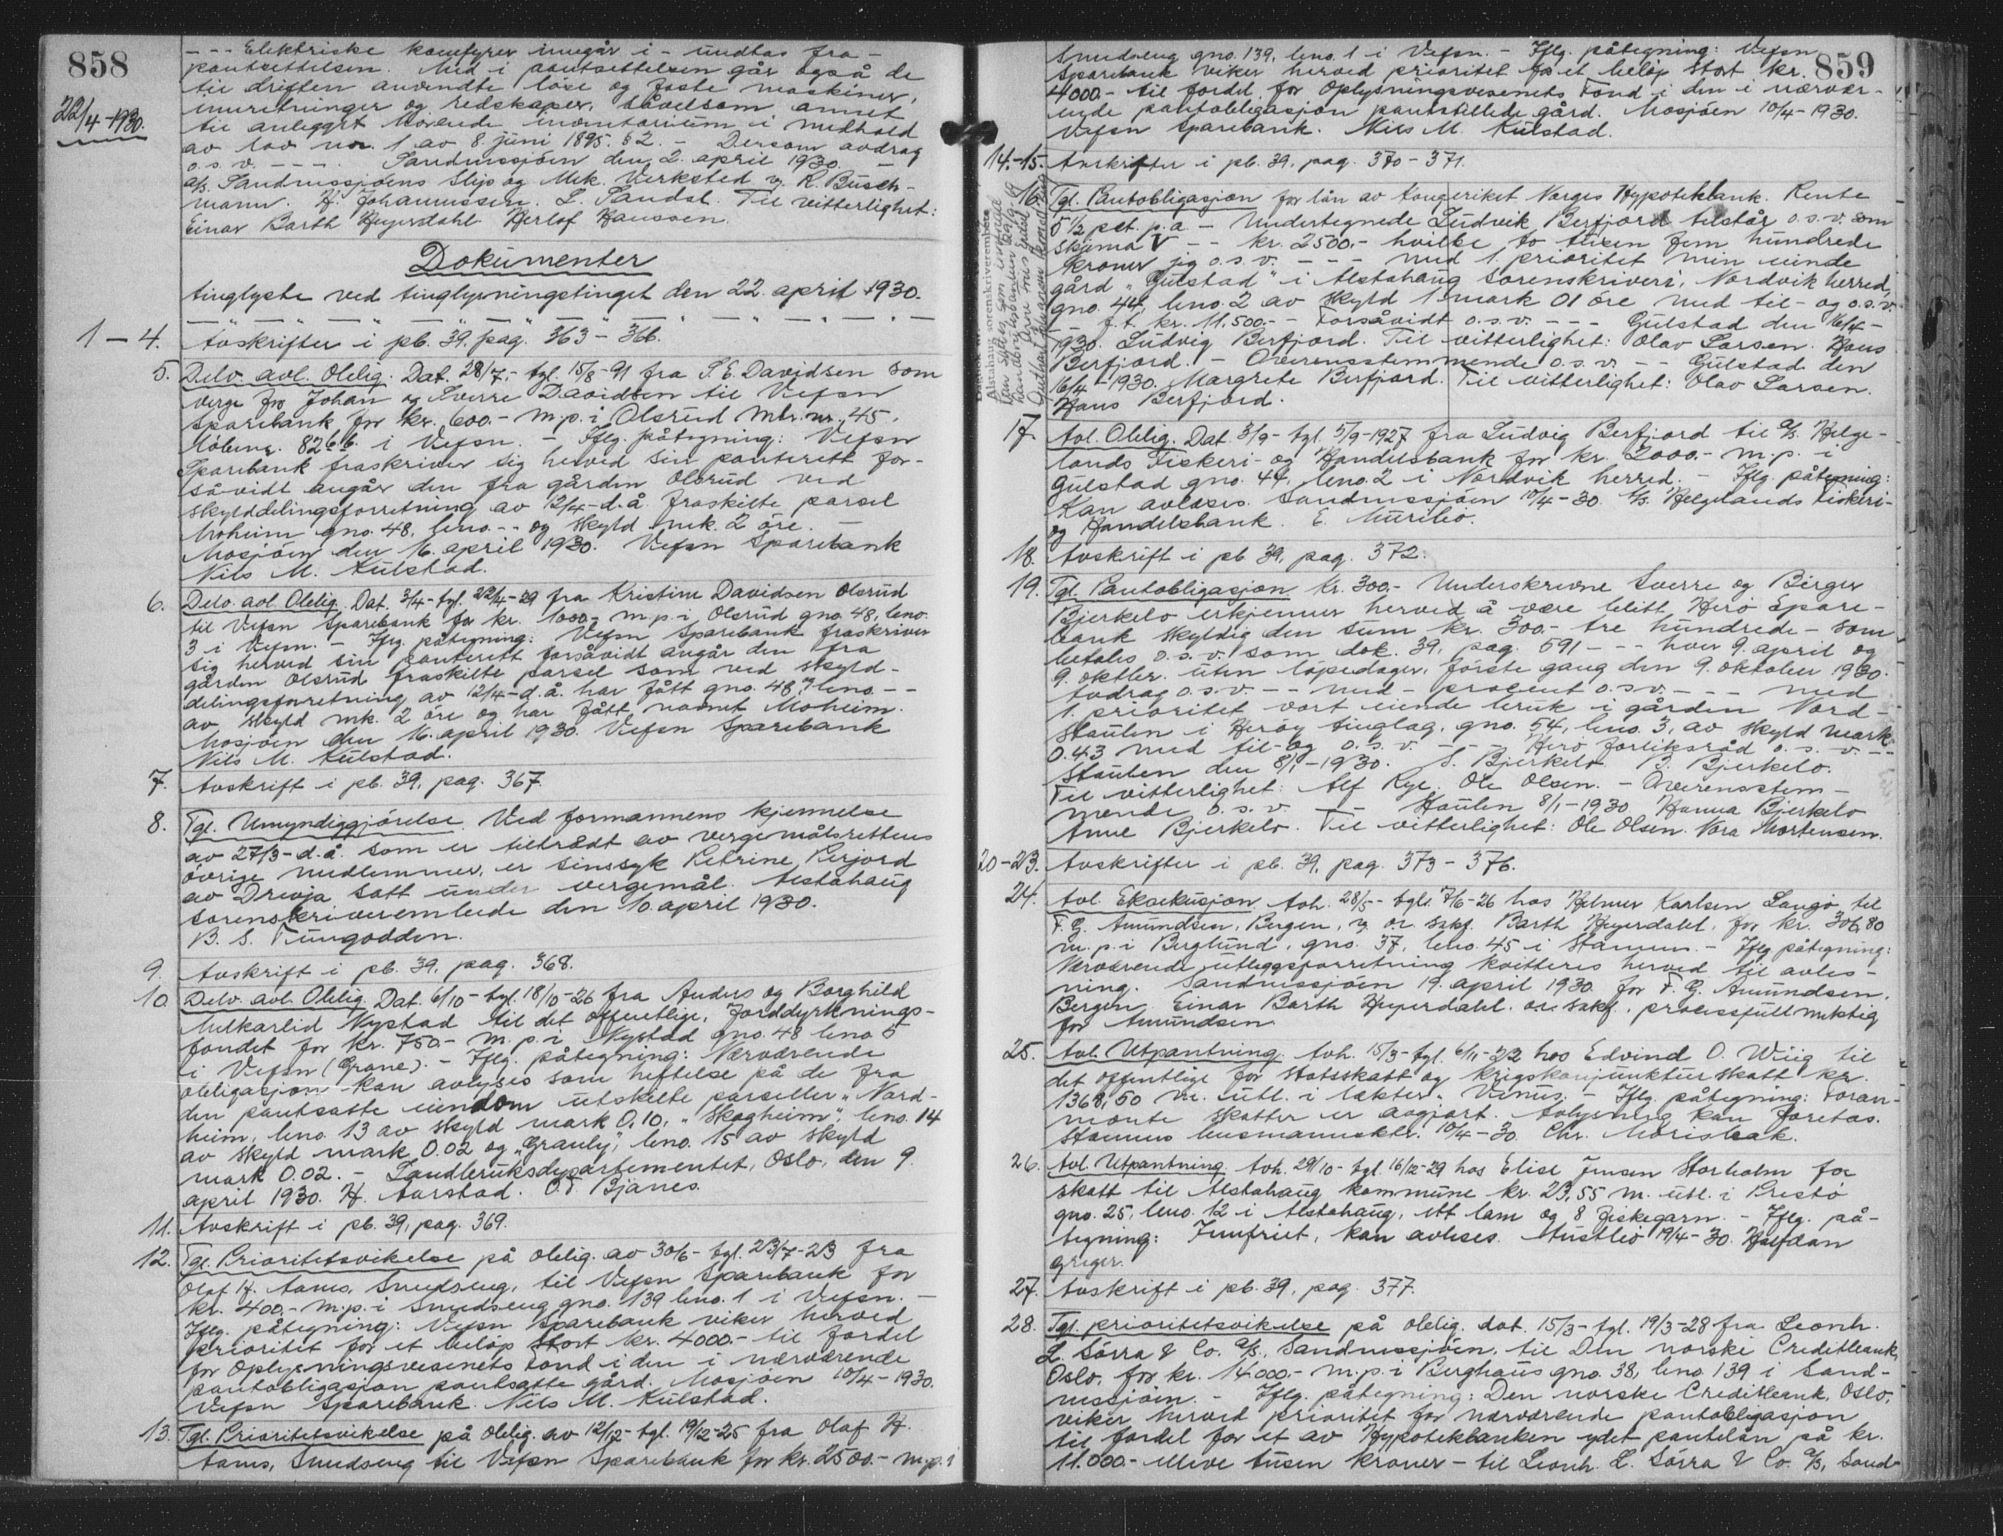 858
22/4-1930.
--- Elektriske komfyrer inngår i - undtas fra -
pantsettelsen. Med i pantsettelsen går også de
til driften anvendte löse og faste maskiner,
innretninger og redskaper, såvelsom annet
til anlegget hörende inventarium i medhold
av lov nr. 1 av 8 juni 1895. § 2. - Dersom avdrag
o.s.v. - - - . Sandnessjöen den 2. april 1930. -
a/s. Sandnessjöens Slip og Mek. Verksted v. R. Busch-
mann. H. Johannessen. L. Sandst. Til vitterlighet:
Einar Barth Heyerdahl Herlof Hanssen.
Dokumenter
tinglyste ved tinglysningstinget den 22. april 1930.
1-4. Avskrifter i pb. 39. pag. 363 - 366.
5. Delv. avl. Oblig. Dat. 28/7 - tgl. 15/8-91 fra S. E. Davidsen som
verge for Johan og Sverre Davidsen til Vefsn
Sparebank for kr. 600.- m.p. i Olsrud Mtr. nr. 45.
Löbenr. 826 b. i Vefsn. - Iflg. påtegning: Vefsn
Sparebank fraskriver sig herved sin panterett for-
såvidt angår den fra gården Olsrud ved
skylddelingsforretning av 12/4-d.å. fraskilte parsel
Moheim gno. 48, bno. - - og skyld mk. 2 öre. -
Mosjöen den 16. april 1930. Vefsn Sparebank
Nils M. Kulstad.
6. Delv. avl. Oblig. Dat. 3/4- tgl. 22/4-29 fra Kristine Davidsen Olsrud
til Vefsn Sparebank for kr. 1000.- m.p. i Olsrud gno. 48, bno.
3 i Vefsn. - Iflg. påtegning: Vefsn Sparebank fraskriver
sig herved sin panterett forsåvidt angår den fra
gården Olsrud fraskilte parsel som ved skyld-
delingsforretning av 12/4-d.å. har fått gno. 48, bno. - -
av skyld mk. 2 öre og har fått navnet Moheim.
Mosjöen den 16. april 1930. Vefsn Sparebank
Nils M. Kulstad.
7. Avskrift i pb. 39, pag. 367.
8. Tgl. Umyndiggjörelse. Ved formannens kjennelse
av 27/3-d.å. som er tiltrådt av vergemålsrettens
övrige medlemmer, er sinssyk Petrine Perjord
av Drevja satt under vergemål. Alstahaug
sorenskriverembede den 10. april 1930.
B. S. Tungodden.
9. Avskrift i pb. 39, pag. 368.
10. Delv. avl. Oblig. Dat. 6/10- tgl. 18/10-26 fra Anders og Borghild
Melkarlid Nystad til det offentlige, Jorddyrknings-
fondet for kr. 750.- m.p. i Nystad gno. 48 bno 5
i Vefsn (Grane). - Iflg. påtegning: Nærværende
obligasjon kan avlyses som heftelse på de fra
den pantsatte eiendom utskilte parseller „Nord-
heim, bno. 13 av skyld mark 0,10, „Skogheim", bno. 14
av skyld mark 0.02 og „Granly", bno. 15 av skyld
mark 0.02. - Landbruksdepartementet, Oslo, den 9.
april 1930. H. Aarstad. O. T. Bjanes.
11. Avskrift i pb. 39, pag. 369.
12. Tgl. Prioritetsvikelse på oblig. av 30/6- tgl. 23/7-23 fra
Olaf H. Aanes, Smedseng, til Vefsn Sparebank for
kr. 400.- m.p. i Smedseng gno. 139 bno. 1 i Vefsn. -
Iflg. påtegning: Vefsn Sparebank viker herved
prioritet for et belöp stort kr. 4000.- til fordel
for Oplysningsvesenets Fond i den i nærværende
pantobligasjon pantsatte gård. Mosjöen 10/4-1930.
Vefsn Sparebank. Nils M. Kulstad.
13. Tgl. Prioritetsvikelse på oblig. av 12/12- tgl. 19/12-25 fra Olaf H.
Aanes, Smedseng til Vefsn Sparebank for kr. 2500.- m.p. i
859
Smedseng gno. 139, bno. 1 i Vefsn. - Iflg. påtegning: Vefsn
Sparebank viker herved prioritet for et belöp stort kr.
4000.- til fordel for Oplysningsvesenets Fond i den i nærvær-
ende pantobligasjon pantstillede gård. Mosjöen 10/4-1930.
Vefsn Sparebank. Nils M. Kulstad.
14.-15. Avskrifter i pb. 39, pag. 370 - 371.
16. Tgl. Pantobligasjon for lån av Kongeriket Norges Hypotekbank. Rente
5 1/2 pct. p.a - Undertegnede Ludvik Berfjord tilstår o.s.v. som
skjema V - - kr. 2500.- hvilke to tusen fem hundrede
kroner jeg o.s.v. - - - med 1. prioritet min eiende
gård „Gulstad" i Alstahaug sorenskriveri, Nordvik herred,
gno. 44, bno. 2 av skyld 1 mark 01 öre med til- og o.s.v.
- - f.t. kr. 11,500.- Forsåvidt o.s.v. - - - Gulstad den 16/4-
1930. Ludvig Berfjord. Til vitterlighet: Olav Larsen. Hans
Berfjord. - Overensstemmende o.s.v. - Gulstad den
16/4-1930. Margrete Berfjord. Til vitterlighet: Olav Larsen.
Hans Berfjord.
17. Avl. Oblig. Dat. 3/9- tgl. 5/9-1927 fra Ludvig Berfjord til a/s. Helge-
lands Fiskeri- og Handelsbank for kr. 2000.- m.p. i
Gulstad gno. 44, bno. 2 i Nordvik herred. - Iflg. påtegning:
Kan avlöses. Sandnessjöen 17/4-30. a/s. Helgelands Fiskeri-
og Handelsbank. E.
18. Avskrift i pb. 39, pag. 372.
19. Tgl. Pantobligasjon Kr. 300.- Underskrevne Sverre og Birger
Bjerkelo erkjenner herved å være blitt Herö Spare-
bank skyldig den sum kr. 300.- tre hundrede - som
betales o.s.v. som dok. 39, pag. 591 - - - hver 9. april og
9. oktbr. uten löpedager, förste gang den 9. oktober 1930.
Avdrag o.s.v. - - med - procent o.s.v. - - - med
1. prioritet vort eiende bruk i gården Nord-
staulen i Heröy tinglag, gno. 54, bno. 3, av skyld mark
0.43 med til- og o.s.v. - - - Herö forliksråd o.s.v. - -
Staulen den 8/1-1930. S. Bjerkelo. B. Bjerkelo.
Til vitterlighet: Alf Rye. Ole Olsen. - Overensstem-
mende o.s.v. - - Staulen 8/1-1930 Hanna Bjerkelo
Anne Bjerkelo. Til vitterlighet: Ole Olsen. Nora Mortensen.
20-23. Avskrifter i pb. 39, pag. 373 - 376.
24. Avl. Eksekusjon. Avh. 28/5- tgl. 7/6-26 hos Helmer Karlsen Langö til
F. G. Amundsen, Bergen, v. o.r. sakf. Barth Heyerdahl, for kr. 306,80
m.p. i Berglund, gno. 37, bno. 45 i Stamnes. - Iflg. påtegning:
Nærværende utleggsforretning kvitteres herved til avlys-
ning. Sandnessjöen 19. april 1930. for F. G. Amundsen,
Bergen. Einar Barth Heyerdahl. o.r. sakf. prosessfullmektig
for Amundsen.
25. Avl. Utpantning. Avh. 15/3- tgl. 6/11-22 hos Edvind O. Wiig til
det offentlige for statsskatt og krigskonjunkturskatt kr.
1368,50 m. utl. i lekter „Venus". - Iflg. påtegning: Foran-
nevnte skatter er avgjort. Avlysning kan foretas.
Stamnes lensmannsktr. 10/4-30. Chr. Morisbak.
26. Avl. Utpantning. Avh. 29/10- tgl. 16/12-29 hos Elise Jensen Storholm for
skatt til Alstahaug kommune kr. 23,55 m. utl. i Prestö
gno. 25, bno. 12 i Alstahaug, ett lam og 8 fiskegarn. - Iflg. på-
tegning: Innfriet, kan avlæses. Austbö 19/4-30. Halfdan
Greger.
27. Avskrift i pb. 39, pag. 377.
28. Tgl. prioritetsvikelse på oblig. dat. 15/3- tgl. 19/3-28 fra Leonh.
L. Sörra & Co. a/s., Sandnessjöen, til Den norske Creditbank,
Oslo, for kr. 14000.- m.p. i Berghaus gno. 38, bno. 139 i Sand-
nessjöen. - Iflg. påtegning: Den norske Creditbank, Oslo,
viker herved prioritet for nærværende pantobligasjon
til fordel for et av Hypotekbanken ydet pantelån på kr.
11.000.- elleve tusen kroner - til Leonh. L. Sörra & Co. a/s, Sand-